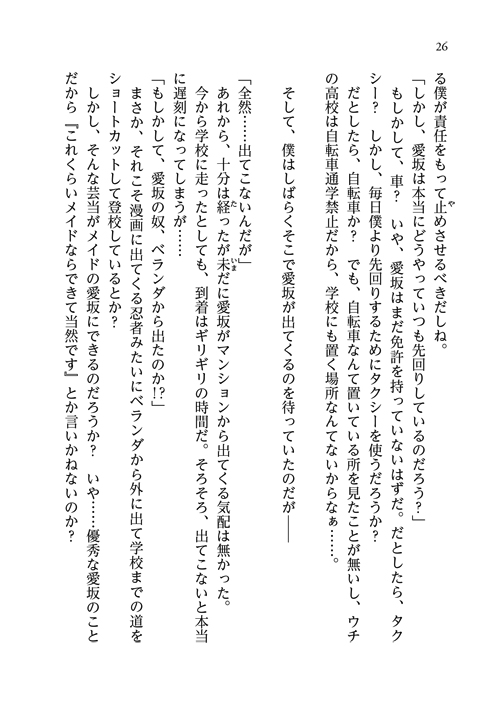 26
る僕が責任をもって止めさせるべきだしね。
「しかし、愛坂は本当にどうやっていつも先回りしているのだろう？」
もしかして、車？　いや、愛坂はまだ免許を持っていないはずだ。だとしたら、タク
シー？　しかし、毎日僕より先回りするためにタクシーを使うだろうか？
だとしたら、自転車か？　でも、自転車なんて置いている所を見たことが無いし、ウチ
の高校は自転車通学禁止だから、学校にも置く場所なんてないからなぁ……。
そして、僕はしばらくそこで愛坂が出てくるのを待っていたのだが――
「全然……出てこないんだが」
あれから、十分は経ったが未だに愛坂がマンションから出てくる気配は無かった。
今から学校に走ったとしても、到着はギリギリの時間だ。そろそろ、出てこないと本当
に遅刻になってしまうが……
「もしかして、愛坂の奴、ベランダから出たのか!?」
まさか、それこそ漫画に出てくる忍者みたいにベランダから外に出て学校までの道を
ショートカットして登校しているとか？
しかし、そんな芸当がメイドの愛坂にできるのだろうか？　いや……優秀な愛坂のこと
だから『これくらいメイドならできて当然です』とか言いかねないのか？